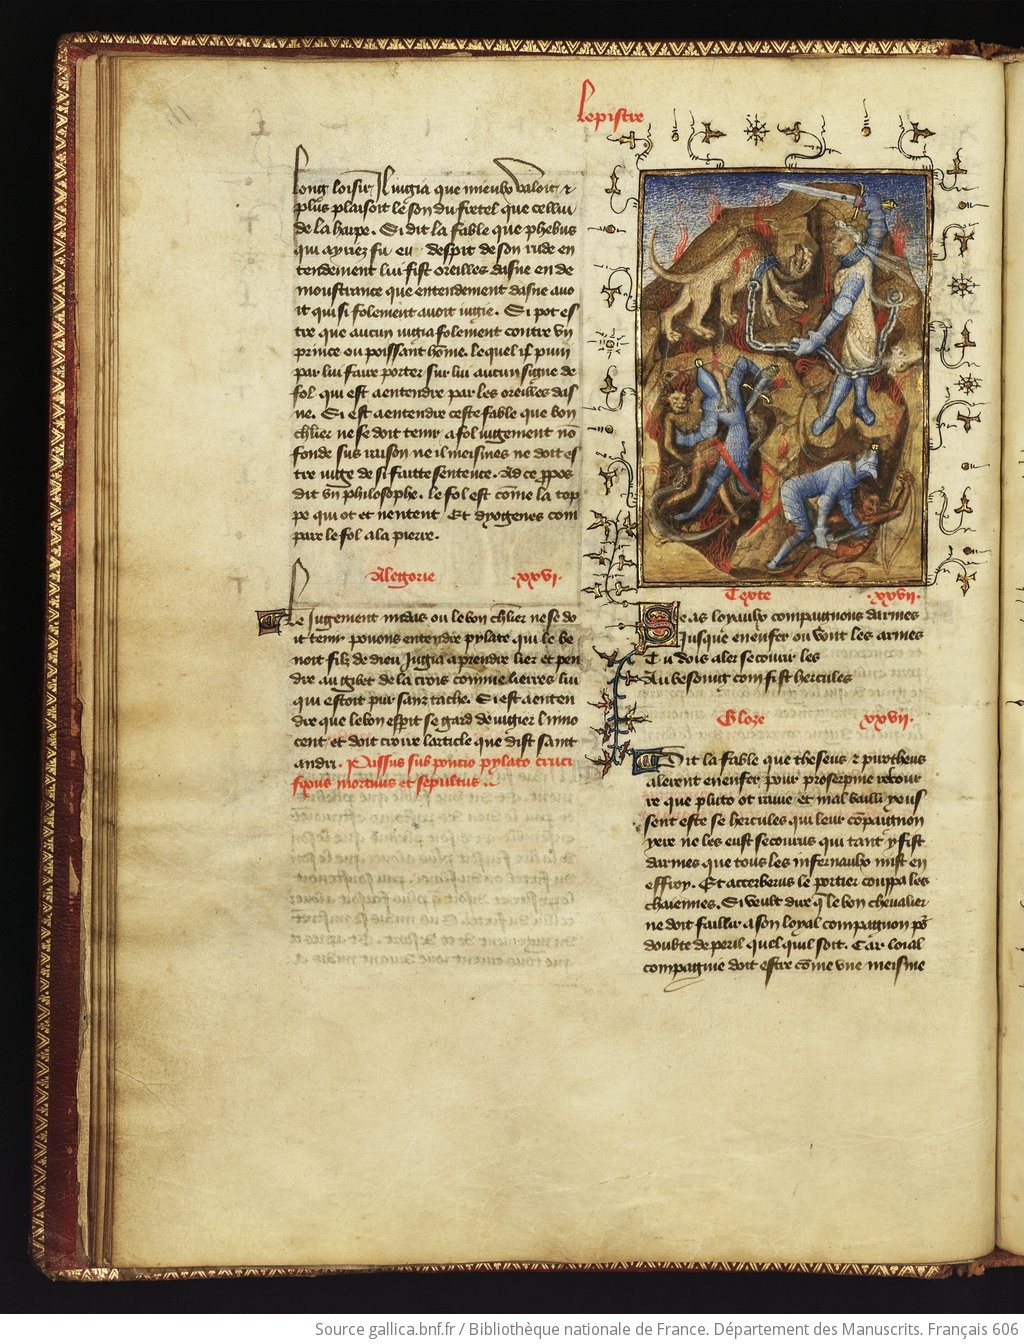 Lepistre
long loisir Il iugia que mieulx valoit &
plus plaisoit le son du fretel que cellui
de la harpe. Si dit la fable que phebus
qui ayriez fu eu despit de son rude en
tendement lui fist oreilles dasne en de
moustrance que entendement dasne auo
it qui si folement auoit iugie. Si pot es
tre que aucun iugia folement contre vn
prince ou poissant hōme. lequel il puni
par lui faire porter sur lui aucun signe de
fol qui est a entendre par les oreilles das
ne. Si est a entendre ceste fable que bon
chlier ne se doit tenir a fol iugement nō
fonde sus raison ne il meismes ne doit es
tre iuge de si faitte sentence. Ad ce ꝓpos
dit vn philosophe. le fol est cōme la top
pe qui ot et nentent Et dyogenes com
pare le fol a la pierre.
Allegorie .xxvi.
Le Jugement midas ou le bon chlier ne se do
it tenir pouons entendre pylate qui le be
noit filz de dieu iugia a prendre lier et pen
dre au gibet de la crois comme lierres lui
qui estoit pur sanz tache. Si est a enten
dre que le bon esprit se gard de iugier linno
cent et doit croire larticle que dist saint
andri. Passus sub poncio pylato cruci
fixus mortuus et sepultus.
Texte .xxvii.
Se as loyaulx compaignons darmes
Iusque en enfer ou vont les armes
Tu dois aler secourir les
Au besoing com fist hercules
Gloze xxvii.
Dit la fable que theseus & pirotheus
alerent en enfer pour proserpine recour
re que pluto ot rauie et mal bailli yeus
sent este se hercules qui leur cōpaignon
yere ne les eust secourus qui tant y fist
darmes que tous les infernaulx mist en
effroy. Et a cerberus le portier couppa les
chaiennes. Si veult dire q̄ le bon cheualier
ne doit faillir a son loyal compaignon pō
doubte de peril quel quil soit. Car loial
compagnie doit estre cōme vne meisme
Source gallica.bnf.fr / Bibliothèque nationale de France. Département des Manuscrits. Français 606